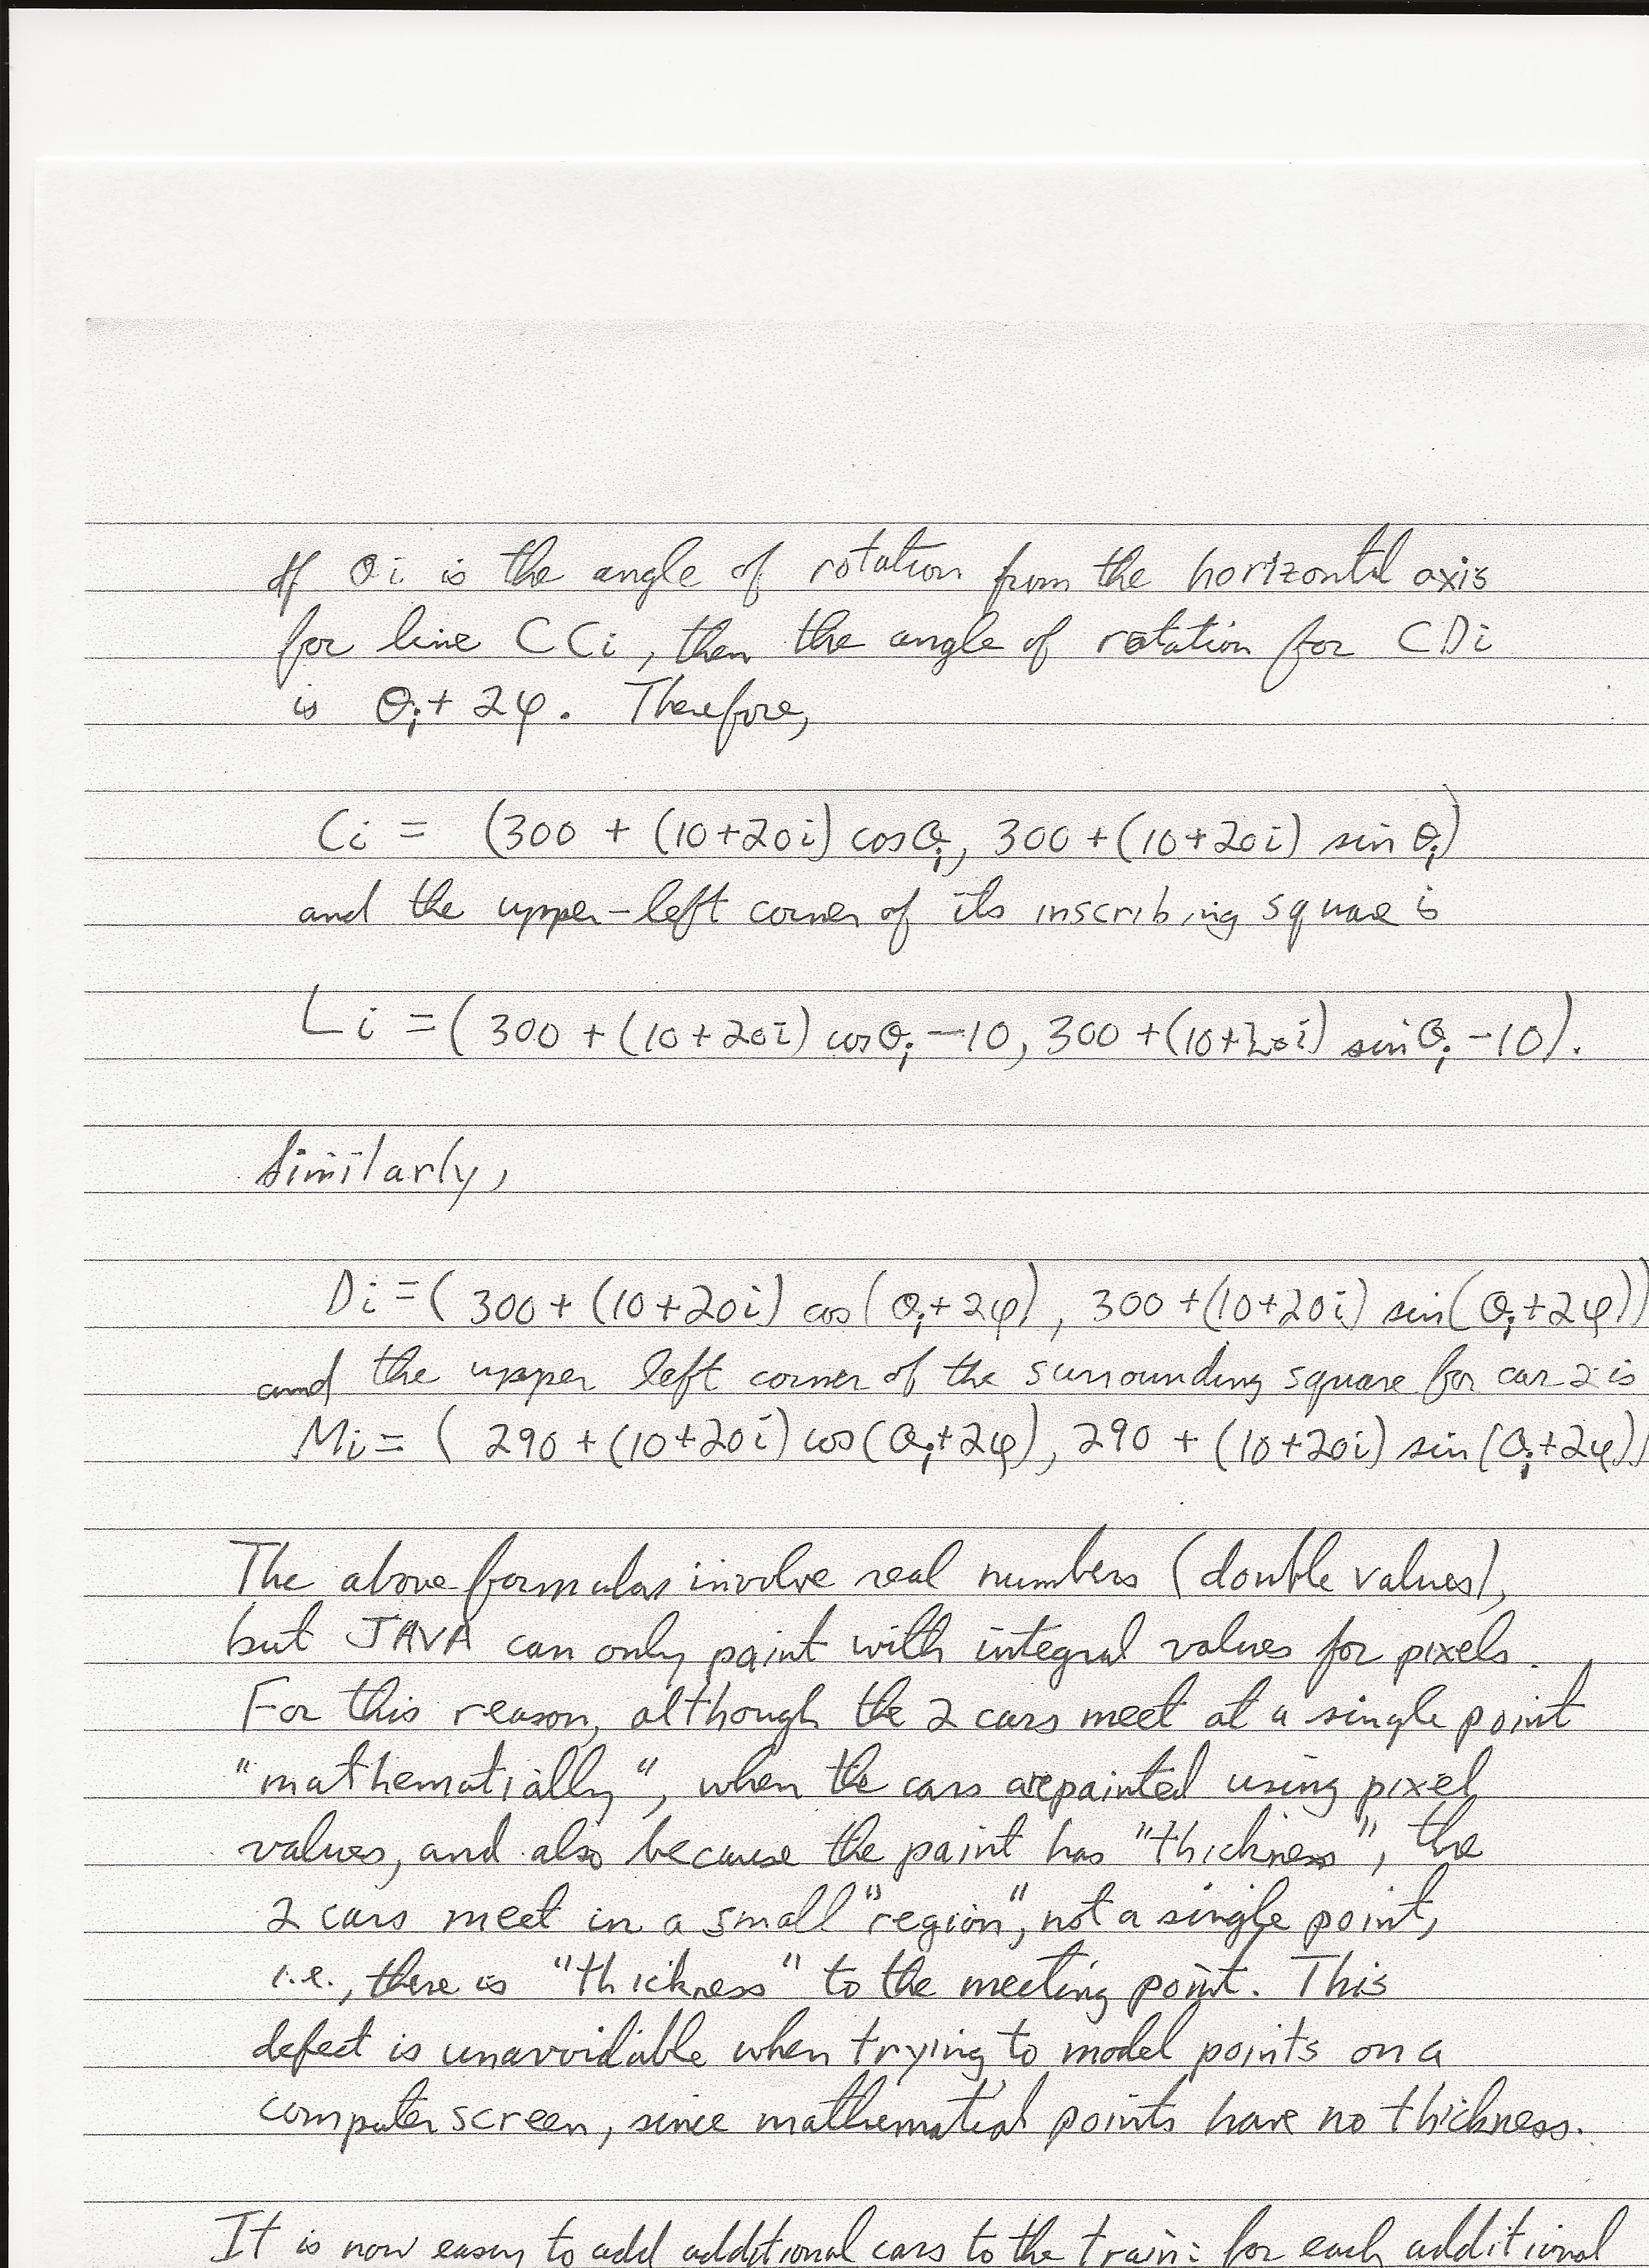 If θi is the angle of rotation from the horizontal axis
for line CCi, then the angle of rotation for CDi
is θi + 2φ. Therefore,
Ci = (300 + (10+20i) cosθi, 300 + (10+20i) sin θi)
and the upper-left corner of its inscribing square is
Li = (300 + (10+20i) cosθi -10, 300 + (10+20i) sinθi -10).
Similarly,
Di = (300 + (10+20i) cos(θi+2φ), 300 + (10+20i) sin(θi+2φ))
and the upper left corner of the surrounding square for car 2 is
Mi = (290 + (10+20i) cos(θi+2φ), 290 + (10+20i) sin(θi+2φ))
The above formulas involve real numbers (double values),
but JAVA can only paint with integral values for pixels.
For this reason, although the 2 cars meet at a single point
"mathematially", when the cars are painted using pixel
values, and also because the paint has "thickness", the
2 cars meet in a small "region", not a single point,
i.e., there is "thickness" to the meeting point. This
defect is unavoidable when trying to model points on a
computer screen, since mathematical points have no thickness.
It is now easy to add additional cars to the train: for each additional